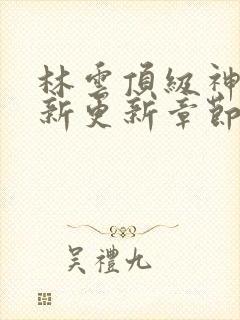 林雲頂級神
新更新章節
吴禮九